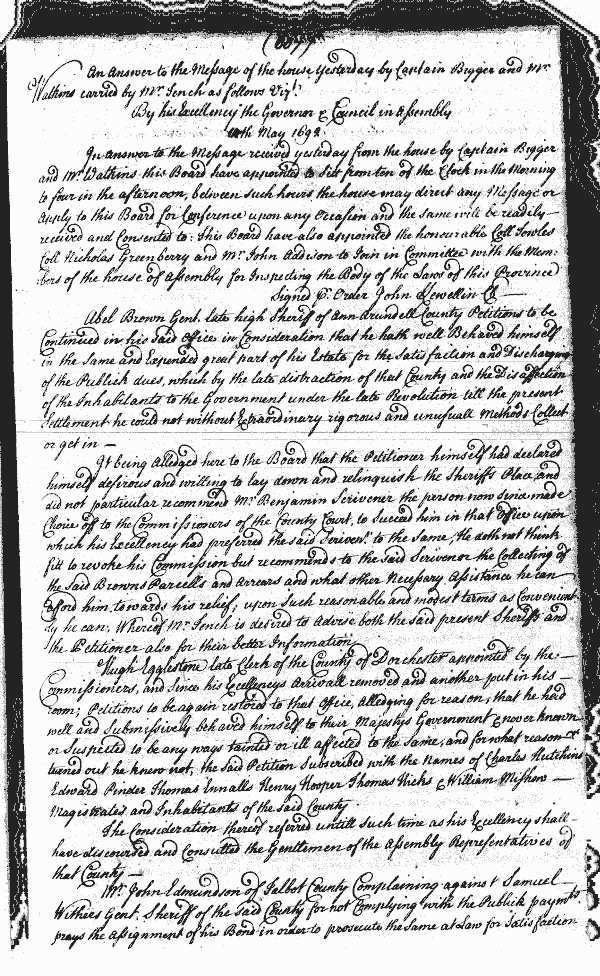 An Answer to the Message of the house Yesterday by Captain Bigger and Mr
Watkins carried by Mr Tench as follows Vizt
By his Excellency the Governor & Council in Assembly
May 1692
In answer to the Message received yesterday from the house by Captain Bigger
and Mr Watkins this Board have appointed to sit from ten of the Clock in the Morning
to four in the afternoon, between such hours the house may direct any Message or
Apply to this Board for Conference upon any Occasion and the same will be readily
received and Consented to: This Board have also appointed the honourable Coll Jowles
Coll Nicholas Greenberry and Mr John Addison to Join in Committee with the Mem:
bers of the house of Assembly for Inspecting the Body of the Laws of this Province
Signed Pr Order John Llewellin Cl
Abel Brown Gent. late high Sheriff of Ann Arundell County Petitions to be
Continued in his said Office in Consideration that he hath well Behaved himself
in the Same and Expended great part of his Estate for the Satisfaction and Discharging
of the Publick dues, which by the late distraction of that County and the Disaffection
of the Inhabitants to the Government under the late Revolution till the present
Settlement he could not without Extraordinary rigorous and unusuall Methods Collect
or get in —
It being alledged here to the Board that the Petitioner himself had declared
himself desirous and willing to lay down and relinquish the Sheriffs Place, and
did not particular recommend Mr Benjamin Scrivener the person now since made
Choice off to the Commissioners of the County Court, to Succeed him in that Office upon
which his Excellency had preferred the said Scrivenr to the Same, He doth not think
fitt to revoke his Commission but recommends to the said Scrivenor the Collecting of
the said Browns Parcells and Arrears and what other Necessary Assistance he can
afford him, towards his relief, upon such reasonable and modest terms as Convenient
ly he can; Whereof Mr Tench is desired to Advise both the said present Sheriff and
the Petitioner also for their better Information
Hugh Eggleston late Clerk of the County of Dorchester appointed by the
Commissioners, and Since his Excellencys Arrivall removed and another put in his
room; Petitions to be again restored to that Office, Alledging for reason, that he had
well and Submissively behaved himself to their Majestys Government & never known
or Suspected to be any ways tainted or ill affected to the Same, and for what reason
turned out he knew not, the said Petition Subscribed with the Names of Charles Hutchins
Edward Pinder Thomas Ennalls Henry Hooper Thomas Hicks & William Mishew —
Magistrates and Inhabitants of the said County
The Consideration thereof referred untill such time as his Excellency shall
have discoursed and Consulted the Gentlemen of the Assembly Representatives of
that County —
Mr John Edmundson of Talbot County Complaining against Samuel
Withers Gent. Sheriff of the said County for not Complying with the Publick paymts
prays the Assignment of his Bond in order to prosecute the Same at Law for Satisfaction